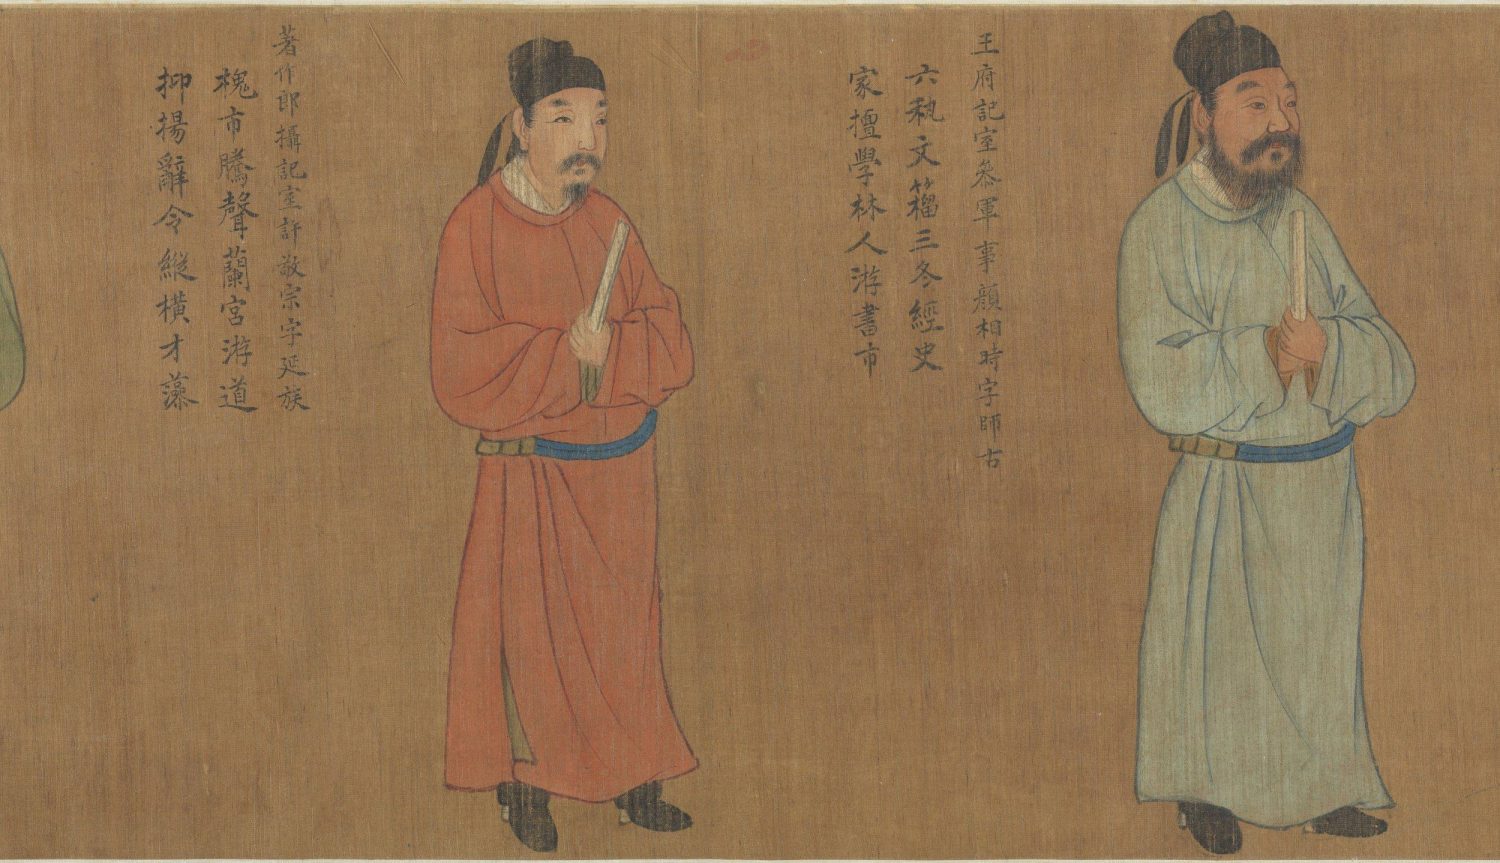 王府記室叅軍事顔相時字師古
六秇文籀三冬經史
家擅學林人游書市
著作郎攝記室許敬宗字延族
槐市騰聲蘭宮游道
抑揚辭令縱横才藻